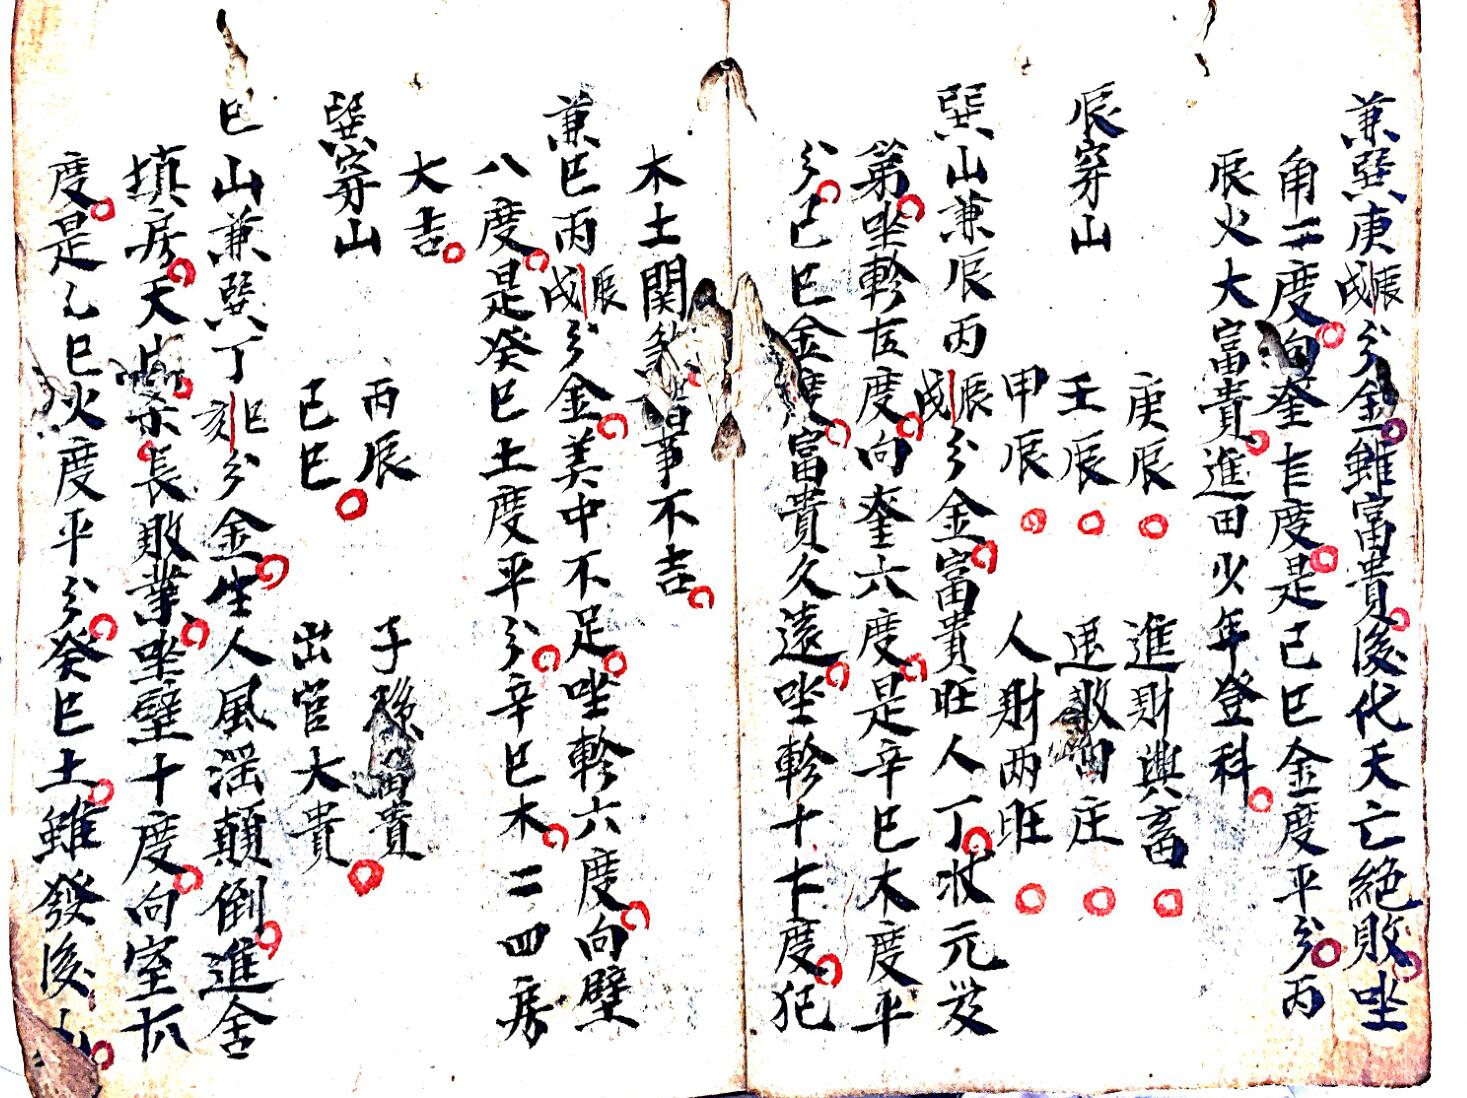 兼巽庚戌辰分金雖富貴後代夭亡絕敗坐
角二度向奎七度是己巳金度平分丙
辰火大富貴進田少年登科
辰穿山
庚辰 進財興畜
壬辰 退敗田庄
甲辰 人財兩旺
巽山兼辰丙戌辰分金富貴旺人丁狀元及
第坐軫五度向奎六度是辛巳木度平
分己巳金度富貴久遠坐軫十七度犯
木土關 事不吉
兼巳丙戌辰分金美中不足坐軫六度向壁
八度是癸巳土度平分辛巳木二四房
大吉
巽穿山
丙辰 子孫富貴
己巳 出官大貴
巳山兼巽丁亥巳分金生人風滛顛倒進舍
填房夭 長敗業坐璧十度向室十八
度是乙巳火度平分癸巳土雖發後